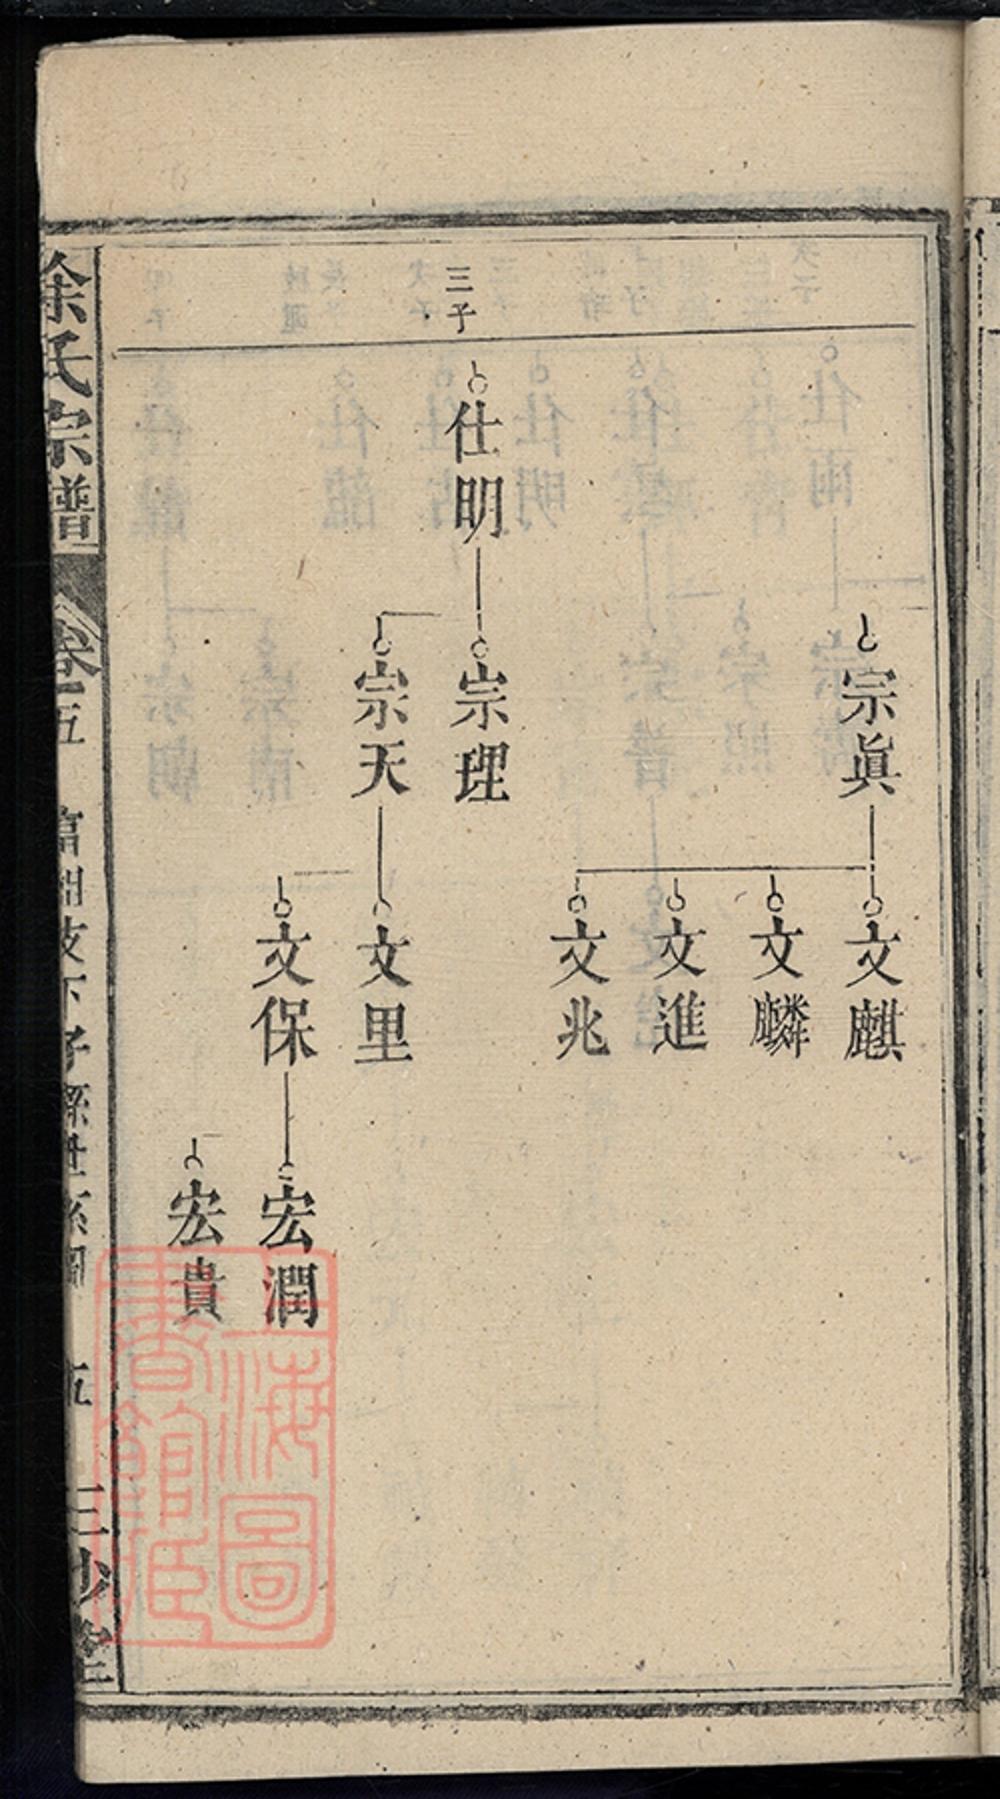 宗眞
文麒
文麟
文進
文兆
三子
仕明
宗理
宗天
文里
文保
宏潤
宏貴
徐氏宗譜
卷五
下子孫世系圖
五
三
上海圖書館藏